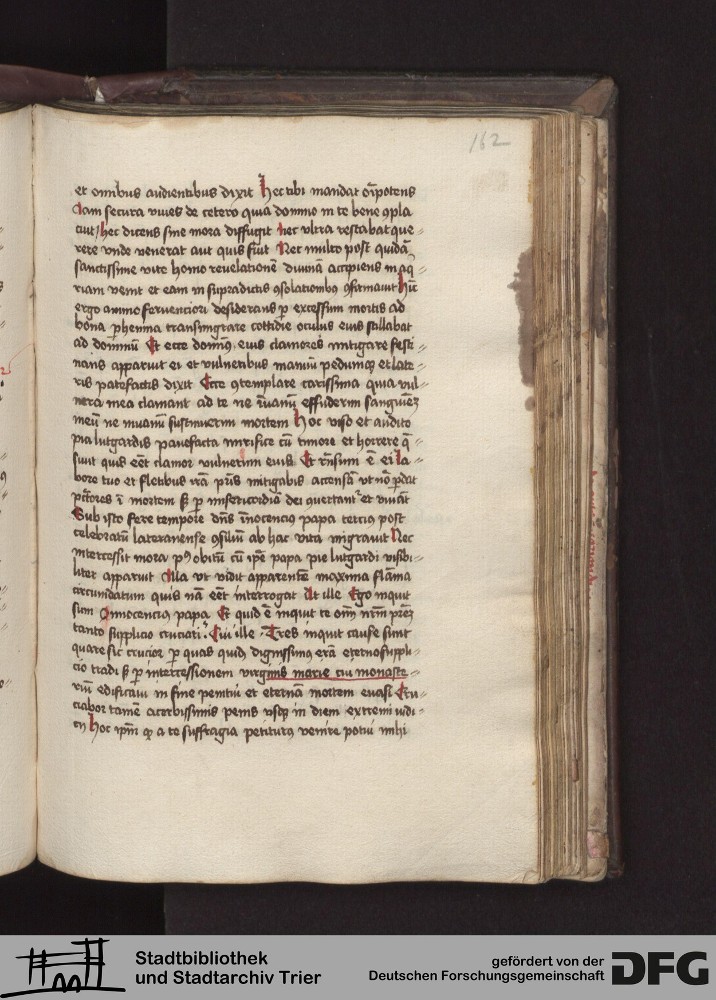 162
et omībus audientibus dixit Hec tibi mandat oīpotens
Iam secura viues de cetero quia domino in te bene 9pla
cuit / hec dicens sine mora diffugit nec vltra restabat que =
rere vnde venerat aut quis fuit Nec multo post quidā
sanctissime vite homo reuelationē diuinā accipiens in aq =
riam venit et eam in supradictis 9solationibus 9firmauit Hīc
ergo animo feruenciori desiderans p excessum mortis ad
bona phenna transmigrare cottidie oculus eius stillabat
ad dominū Et ecce domin9 eius clamores mitigare festi =
nans apparuit ei et vulneribus manuū pedumq3 et late =
ris patefactis dixit Ecce 9templare carissima quia vul =
nera mea clamant ad te ne īuanū effuderim sanguinē
meū ne inuanū sustinuerim mortem Hoc viso et audito
pia lutgardis pauefacta mirifice cū timore et horrore q =
siuit quis eēt clamor vulnerum eius Et rūsum ē ei la =
bore tuo et fletibus irā pris mitigabis accensā vt nō pdat
pctores ī mortem s3 p misericordiā dei quertant et viuāt
Sub isto fere tempore dn̄s īnocencius papa tercius post
celebratū lateranense 9silium ab hac vita migrauit Nec
intercessit mora p9 obitū cū ipe papa pie lutgardi visibi =
liter apparuit Illa vt vidit apparentē maxima flāma
circumdatum quis nā eēt interrogat At ille Ego inquit
sum Innocencius papa Et quid ē inquit te oīm nrm prem
tanto supplicio cruciari? Cui ille Tres inquit cause sunt
quare sic crucior p quas quidē dignissimus erā eterno suppli =
cio tradi s3 p intercessionem virginis marie cui monaste =
riū edificaui in fine penitui et eternā mortem euasi Cru =
ciabor tamē acerbissimis penis vsq3 in diem extremi iudi =
cij Hoc ipm q a te suffragia petitur9 venire potui mihi
Stadtbibliothek
und Stadtarchiv Trier
gefördert von der
Deutschen Forschungsgemeinschaft
DFG